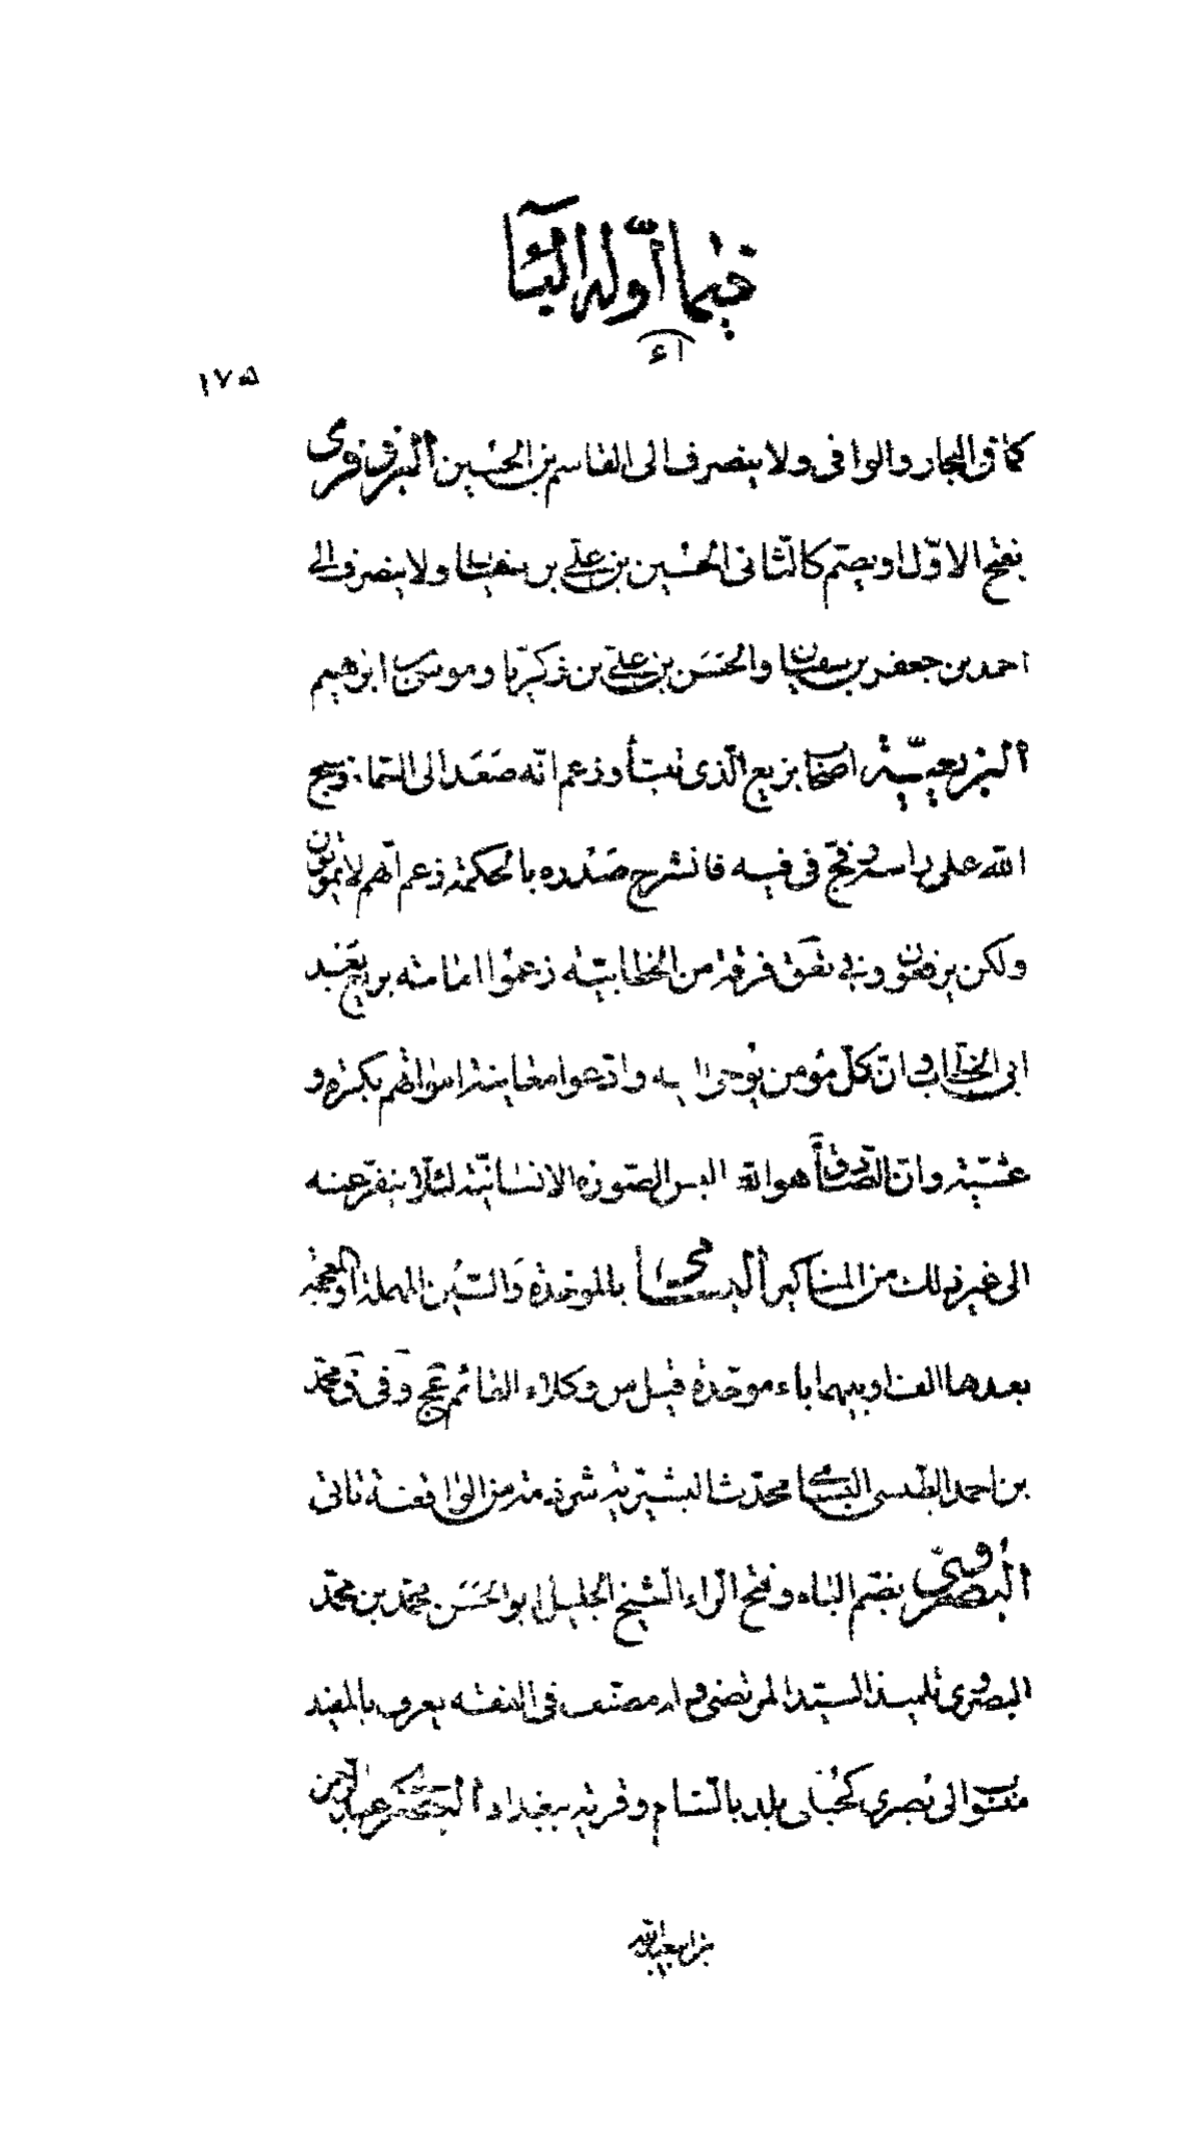 فیما أوّله الباء
١٧۵
کما فی البحار والوافی ولا ینصرف الی القاسم بن الحسین البزوفری
بفتح الاوّل او بضم کالثانی الحسین بن علی بن سفیان ولا ینصرف الی
احمد بن جعفر بن سفیان والحسن بن علی بن زکریا وموسی بن ابرهیم
البزیعیّة اصحاب بزیع الّذی وزعم انّه صعد الی السّماء ومسح
الله علی راسه و فی فیه فانشرح صدره بالحکمة زعم انّهم لا یموتون
ولکن یرفعون و فی فرقة من الخطابیّة زعموا امامته بزیع بعد
ابی الخطاب و انّ کلّ مؤمن یوحی الیه وادّعوا معاینة امواتهم بکرة و
عشیّة وانّ الصّادق هو الله البس الصّورة الانسانیّة لئلّا ینفر عنه
الی غیر ذلک من المناکیر البسامی بالموحّدة والسّین المهملة او المعجمة
بعدها الف او بینهما باء موحّدة قیل من وکلاء القائم عج وفی محمّد
بن احمد البسامی محدّث البشیریّة شرذمة من الواقفة تاتی
البصروی بضم الباء وفتح الرّاء الشّیخ الجلیل ابو الحسن محمّد بن محمّد
البصروی تلمیذ السیّد المرتضی وله مصنّف فی الفقه یعرف بالمفید
منسوب الی بصری کحبلی بلد بالشّام وقریة ببغداد عبد الرّحمن
بن ابی عبدالله